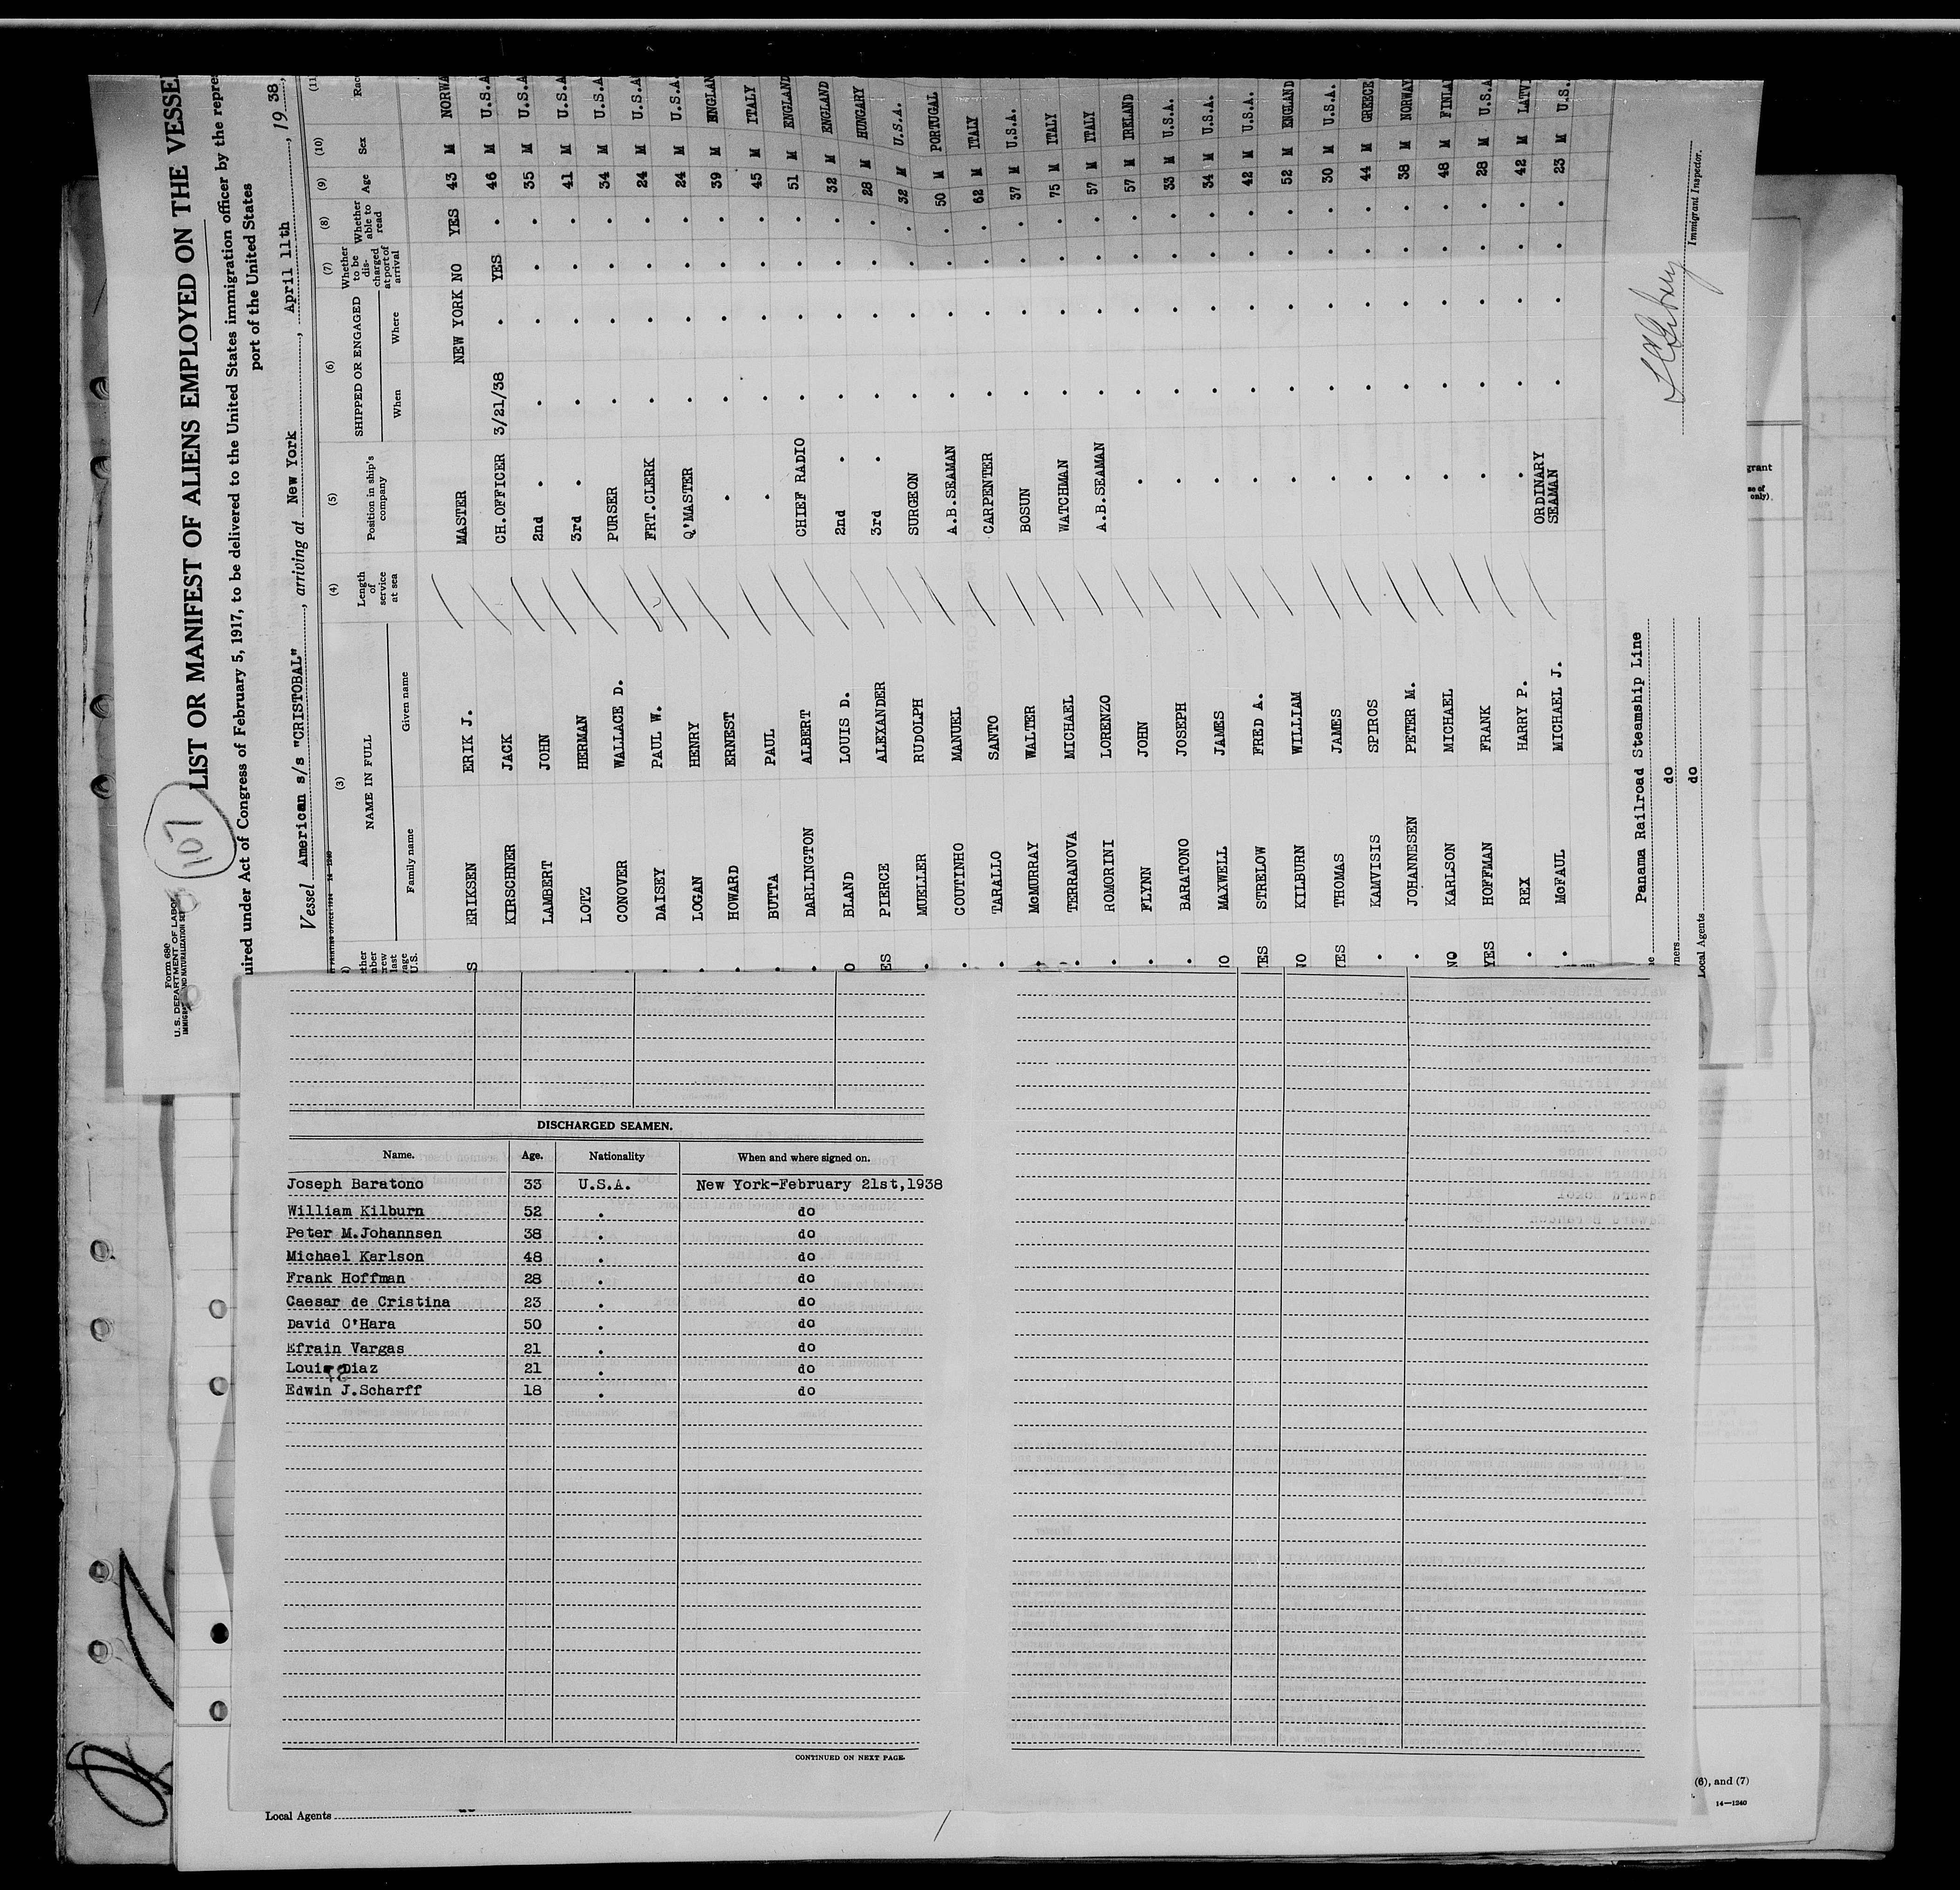 107
Form 680
U.S. DEPARTMENT OF LABOR
LIST OR MANIFEST OF ALIENS EMPLOYED ON THE VESSE
uired under Act of Congress of February 5, 1917, to be delivered to the United States immigration officer by the repre
port of the United States
Vessel American s/s "CRISTOBAL", arriving at New York, April 11th, 19 38,
(3) (4) (5) (6) (7) (8) (9) (10) (11
NAME IN FULL Length of service at sea Position in ship's company SHIPPED OR ENGAGED Whether to be discharged at port of arrival Whether able to read Age Sex Rac
Family name Given name When Where
ERIKSEN ERIK J. MASTER NEW YORK NO YES 43 M NORWA
KIRSCHNER JACK CH.OFFICER 3/21/38 . YES . 46 M U.S.A
LAMBERT JOHN 2nd . . . . . 35 M U.S.A
LOTZ HERMAN 3rd . . . . . 41 M U.S.A
CONOVER WALLACE D. PURSER . . . . 34 M U.S.A
DAISEY PAUL W. FRT.CLERK . . . . 24 M U.S.A
LOGAN HENRY Q'MASTER . . . . 24 M U.S.A.
HOWARD ERNEST . . . . . 39 M ENGLAN
BUTTA PAUL . . . . . 45 M ITALY
DARLINGTON ALBERT CHIEF RADIO . . . . 51 M ENGLAND
BLAND LOUIS D. 2nd . . . . . 32 M ENGLAND
PIERCE ALEXANDER 3rd . . . . . 28 M HUNGARY
MUELLER RUDOLPH SURGEON . . . . 32 M U.S.A.
COUTINHO MANUEL A.B.SEAMAN . . . . 50 M PORTUGAL
TARALLO SANTO CARPENTER . . . . 62 M ITALY
McMURRAY WALTER BOSUN . . . . 37 M U.S.A.
TERRANOVA MICHAEL WATCHMAN . . . . 75 M ITALY
ROMORINI LORENZO A.B.SEAMAN . . . . 57 M ITALY
FLYNN JOHN . . . . . 57 M IRELAND
BARATONO JOSEPH . . . . . 33 M U.S.A.
MAXWELL JAMES . . . . . 34 M U.S.A.
STRELOW FRED A. . . . . . 42 M U.S.A.
KILBURN WILLIAM . . . . . 52 M ENGLAND
THOMAS JAMES . . . . . 30 M U.S.A.
KAMVISIS SPIROS . . . . . 44 M GREECE
JOHANNESEN PETER M. . . . . . 38 M NORWAY
KARLSON MICHAEL . . . . . 48 M FINLA
HOFFMAN FRANK . . . . . 28 M U.S.A
REX HARRY P. . . . . . 42 M LATV
McFAUL MICHAEL J. ORDINARY SEAMAN . . . . 23 M U.S.
Panama Railroad Steamship Line
do
Local Agents do
Immigrant Inspector.
DISCHARGED SEAMEN.
Name. Age. Nationality When and where signed on.
Joseph Baratono 33 U.S.A. New York-February 21st,1938
William Kilburn 52 . do
Peter M.Johannsen 38 . do
Michael Karlson 48 . do
Frank Hoffman 28 . do
Caesar de Cristina 23 . do
David O'Hara 50 . do
Efrain Vargas 21 . do
Louis Diaz 21 . do
Edwin J.Scharff 18 . do
CONTINUED ON NEXT PAGE.
Local Agents
(6), and (7)
14—1240